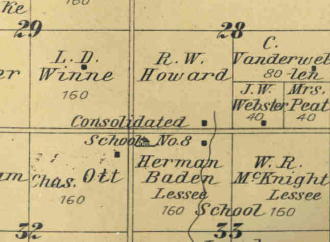 Ke
160
29
28
L. D.
Winne
160
R. W.
Howard
C.
Vanderwer
80 len
J. W.
Webster
40
Mrs.
Peat
40
er
Consolidated
School No. 8
am
Chas. Ott
160
Herman
Baden
Lessee
160
W. R.
McKnight
Lessee
School 160
32
33